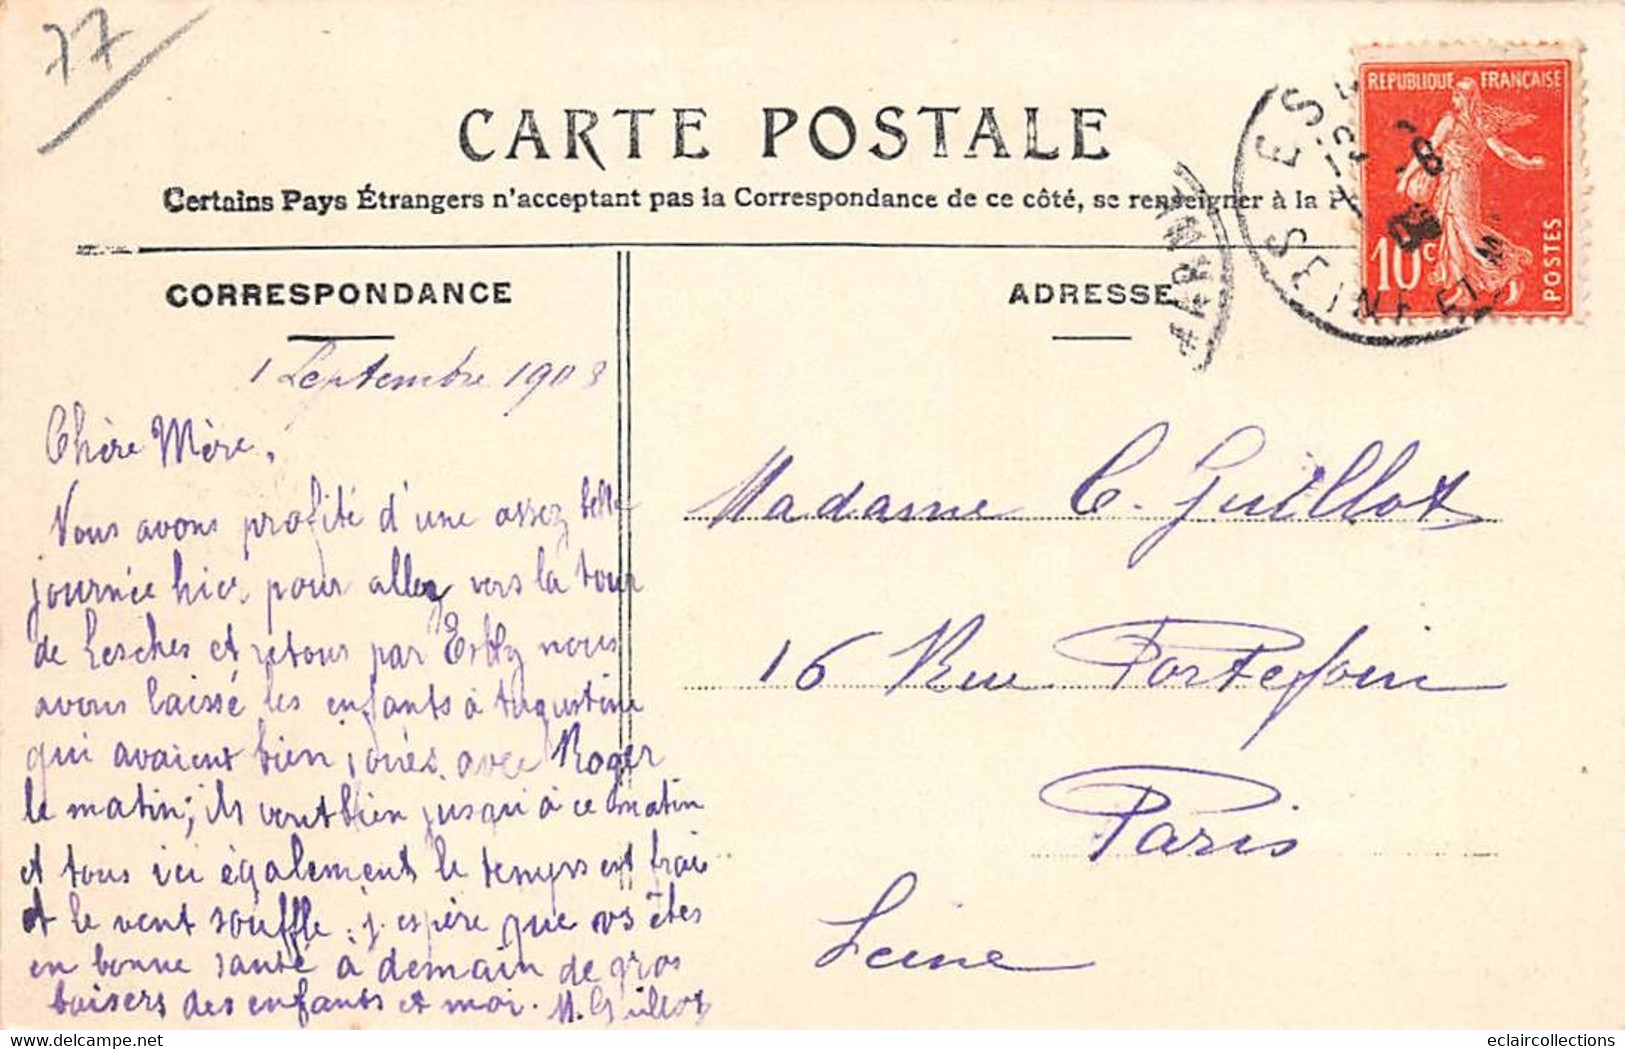 77
CARTE POSTALE
Certains Pays Étrangers n'acceptant pas la Correspondance de ce côté, se renseigner à la P
CORRESPONDANCE
ADRESSE
REPUBLIQUE FRANÇAISE
10 c
POSTES
SEINE ET M
1 Septembre 1908
Chère Mère,
Nous avons profité d'une assez belle
journée hier pour aller vers la tour
de Lesches et retour par Esbly nous
avons laissé les enfants à Augustine
qui avaient bien joués avec Roger
le matin; ils vont bien jusqu'à ce matin
et tous ici également le temps est frais
et le vent souffle. j'espère que vs êtes
en bonne santé à demain de gros
baisers des enfants et moi. M. Guillot
Madame C. Guillot
16 Rue Portefoin
Paris
Seine
eclaircollections